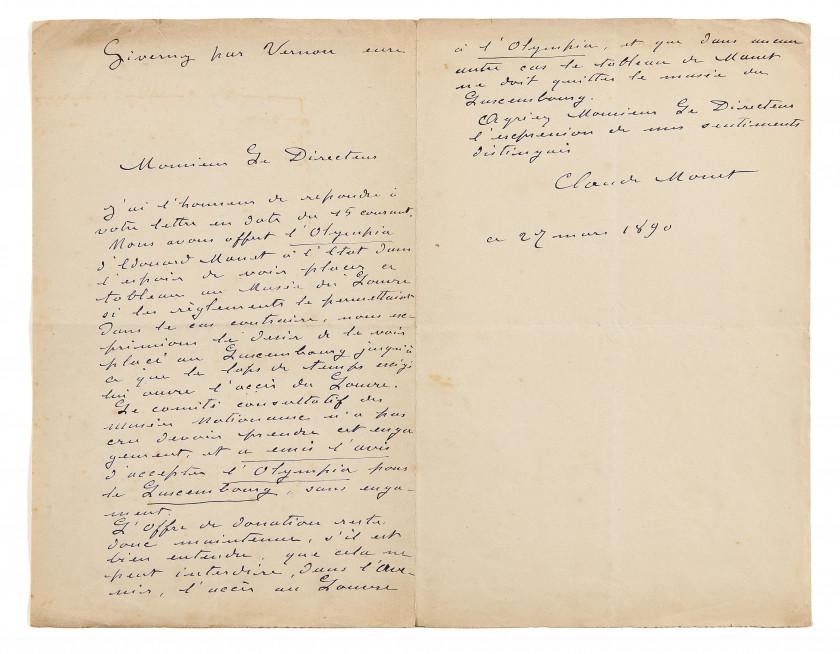 Giverny par Vernon eure
Monsieur Le Directeur
J'ai l'honneur de repondre à
votre lettre en date du 15 courant.
Nous avons offert l'Olympia
d'Edouard Manet à l'Etat dans
l'espoir de voir placer ce
tableau au Musée du Louvre
si les règlements le permettaient
Dans le cas contraire, nous ex-
primions le désir de le voir
placé au Luxembourg jusqu'à
ce que le laps de temps exigé
lui ouvre l'accès du Louvre.
Le comité consultatif des
Musées Nationaux n'a pas
cru devoir prendre cet enga
gement, et a emis l'avis
d'accepter l'Olympia pour
le Luxembourg, sans enga-
ment.
L'offre de donation reste
donc maintenue, s'il est
bien entendu, que cela ne
peut interdire, dans l'ave-
nir, l'accès au Louvre
à l'Olympia, et que dans aucun
autre cas le tableau de Manet
ne doit quitter le musée du
Luxembourg.
Agréez Monsieur Le Directeur
l'expression de mes sentiments
distingués
Claude Monet
ce 27 mars 1890